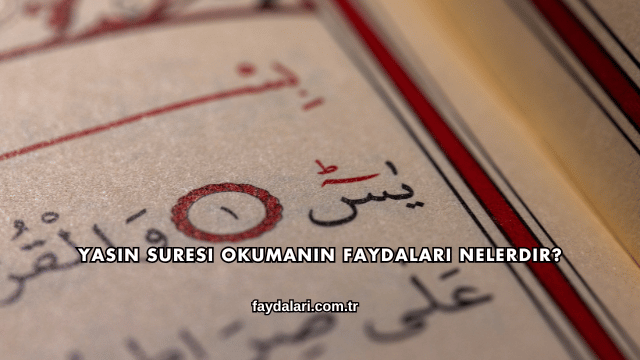 بِسْ
يٰسٓ ١ وَالْقُرْ
YASIN SURESI OKUMANIN FAYDALARI NELERDIR?
faydalari.com.tr
عَلٰى صِرَاطٍ